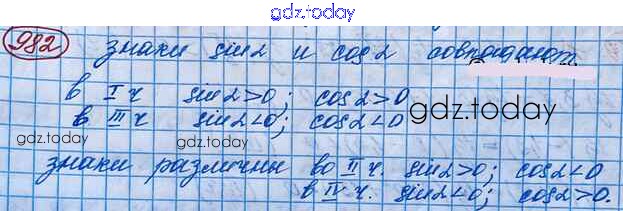 gdz.today
982 знаки sin α и cos α совпадают
в I ч sin α > 0; cos α > 0
в III ч sin α < 0; cos α < 0
gdz.today
gdz.today
знаки различны во II ч. sin α > 0; cos α < 0
в IV ч. sin α < 0; cos α > 0.